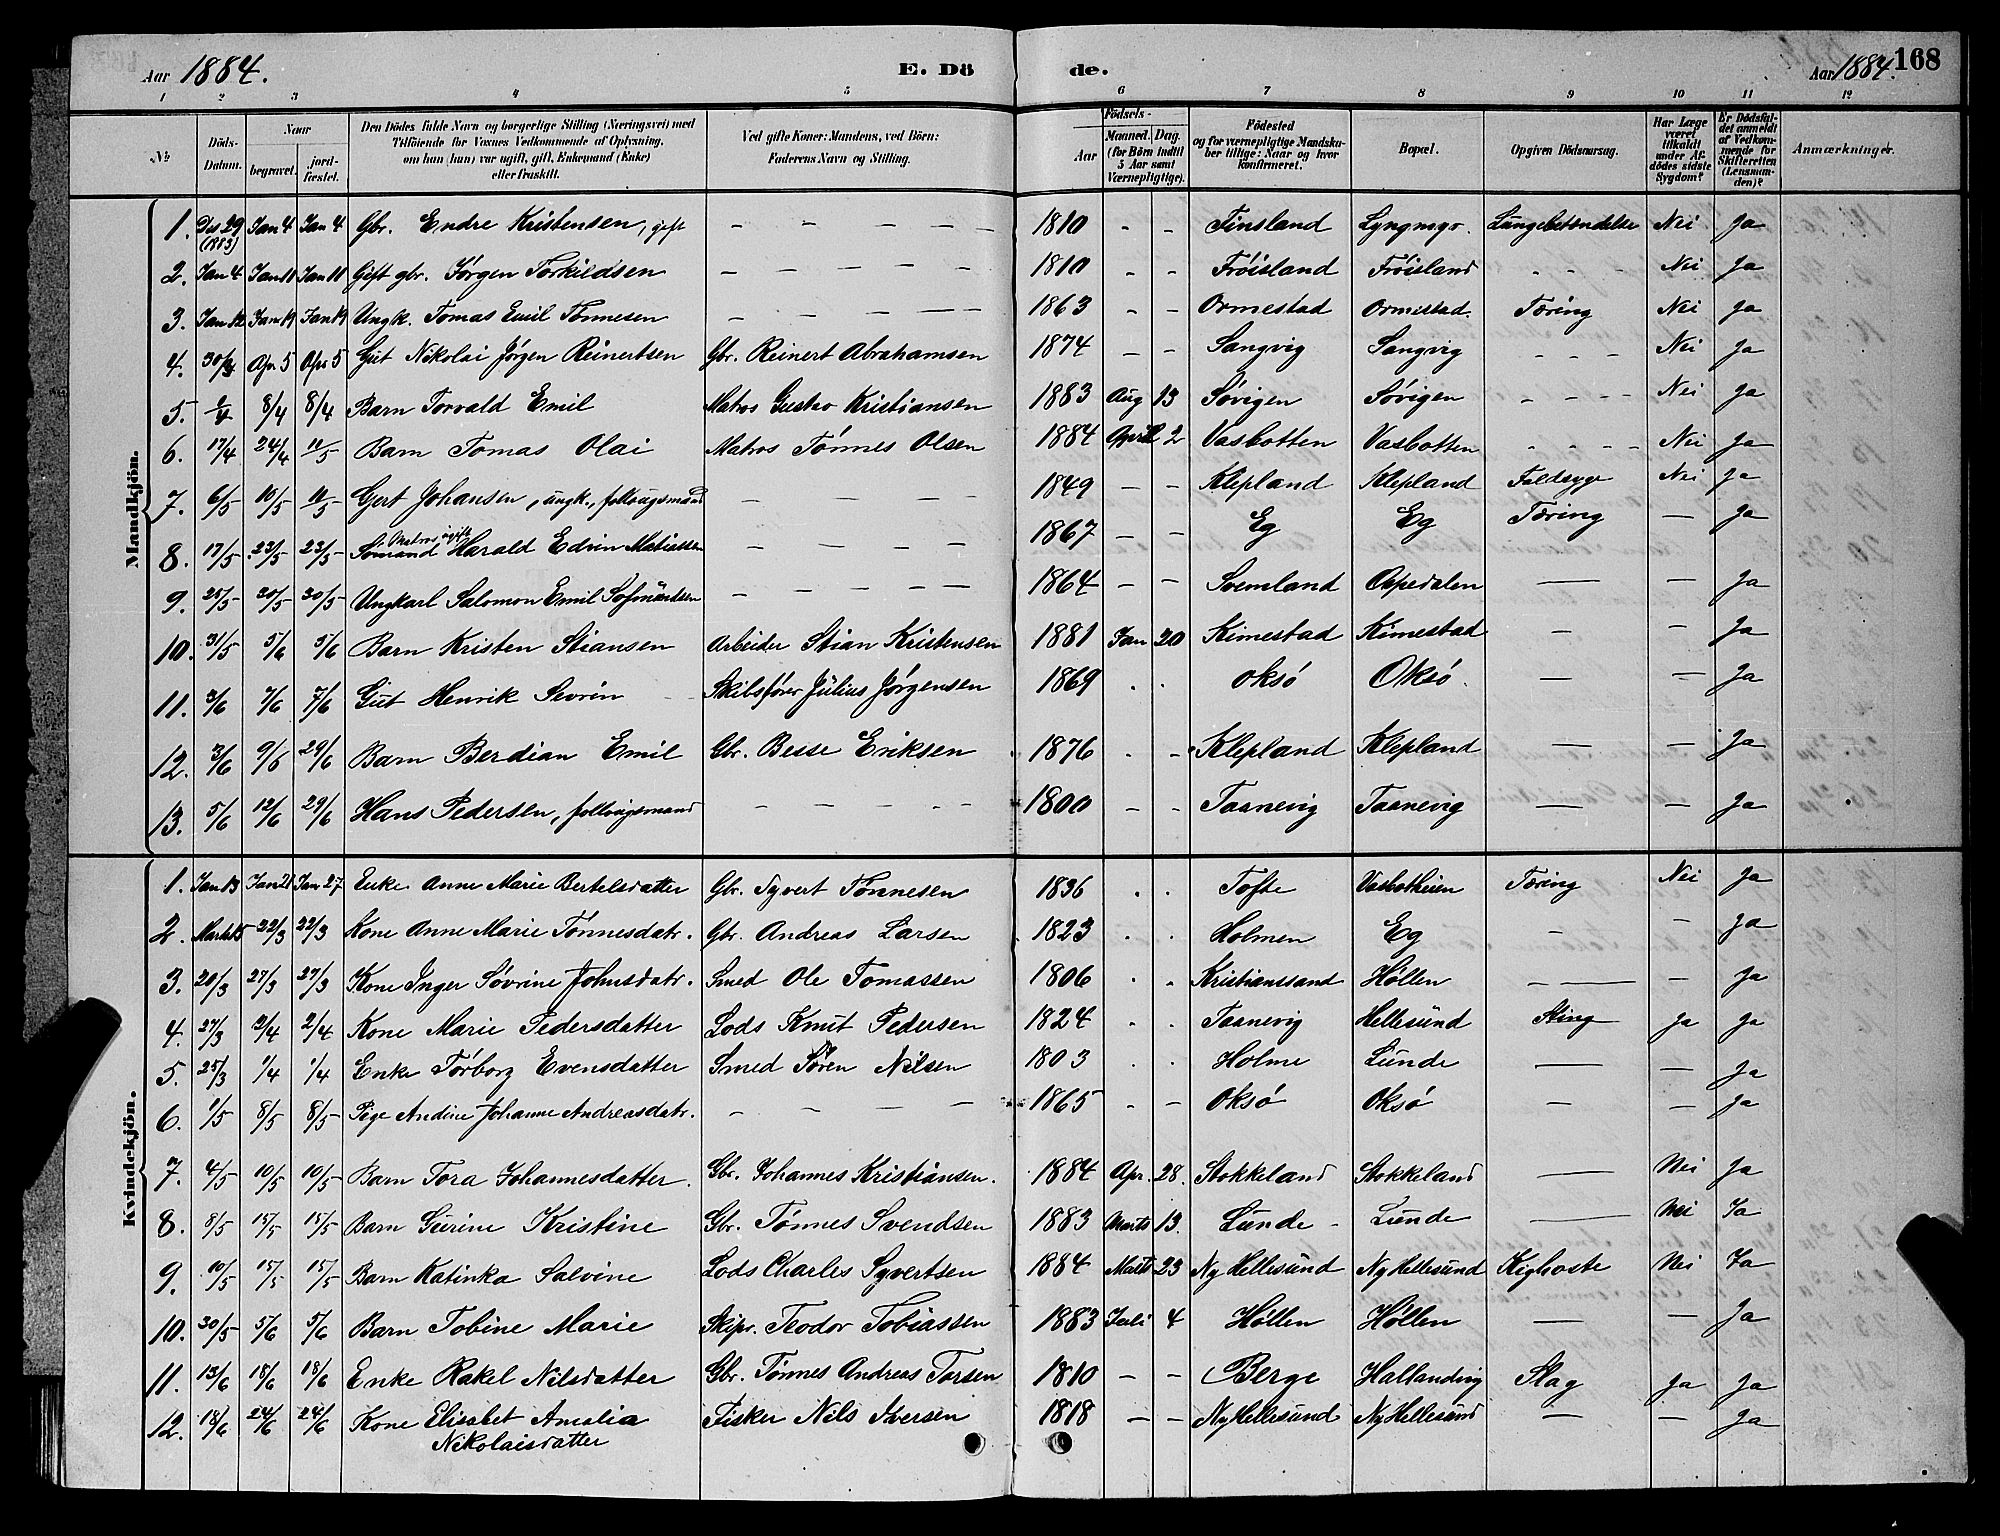 Aar 1884. E. Dö de. Aar 1884. 168
1 2 3 4 5 6 7 8 9 10 11 12
№ Döds-Datum. Naar begravet. jordfæstet. Den Dödes fulde Navn og borgerlige Stilling (Næringsvei) med Tilföiende for Voxnes Vedkommende af Oplysning, om han (hun) var ugift, gift, Enkemand (Enke) eller fraskilt. Ved gifte Koner: Mandens, ved Börn: Faderens Navn og Stilling. Födsels- Aar Maaned. Dag. (for Börn indtil 5 Aar samt Værnepligtige). Födested og for værnepligtige Mandskaber tillige: Naar og hvor konfirmeret. Bopæl. Opgiven Dödsaarsag. Har Læge været tilkaldt under Afdödes sidste Sygdom? Er Dödsfaldet anmeldt af Vedkommende for Skifteretten (Lensmanden)? Anmærkninger.
Mandkjön.
1. Des 29 (1883) Jan 4 Jan 4 Gbr. Endre Kristensen, gift — — — — — 1810 - - Finsland Lyngmyr. Lungebetændelse Nei Ja
2. Jan 4 Jan 11 Jan 11 Gift gbr. Jørgen Torkildsen — — — — — 1810 - - Frøisland Frøisland - - - Nei Ja
3. Jan 12 Jan 19 Jan 19 Ungk. Tomas Emil Tønnesen — — — — — 1863 - - Ormestad Ormestad. Tæring Nei Ja
4. 30/3 Apr 5 Apr 5 Gut Nikolai Jørgen Reinertsen Gbr. Reinert Abrahamsen 1874 - - Langvig Langvig - - - Nei Ja
5. 2/4 8/4 8/4 Barn Torvald Emil Matros Gustav Kristiansen 1883 Aug 13 Søvigen Søvigen - - - - Nei Ja
6. 17/4 24/4 11/5 Barn Tomas Olai Matros Tønnes Olsen 1884 April 2 Vasbotten Vasbotten - - - - Nei Ja
7. 6/5 10/5 11/5 Gert Johansen, ungk., follougsmand — — — — 1849 - - Klepland Klepland Faldsyge Nei Ja
8. 17/5 23/5 23/5 Sømand Harald Edvin Matiassen — — — — — 1867 - - Eg Eg Tæring — Ja
9. 25/5 30/5 30/5 Ungkarl Salomon Emil Sofmundsen — — — — — 1864 - - Svemland Ospedalen — — Ja
10. 31/5 5/6 5/6 Barn Kristen Stiansen Arbeider Stian Kristensen 1881 Jan 20 Kimestad Kimestad — — Ja
11. 3/6 7/6 7/6 Gut Henrik Sevrin Skibsfører Julius Jørgensen 1869 . . Oksø Oksø. — — Ja
12. 3/6 9/6 29/6 Barn Berdian Emil Gbr. Besse Eriksen 1876 . - Klepland Klepland — — Ja
13. 5/6 12/6 29/6 Hans Pedersen, follougsmand — — — — — 1800 - - Taanevig Taanevig — — Ja
Kvindekjön.
1. Jan 13 Jan 21 Jan 27 Enke Anne Marie Bertelsdatter Gbr. Syvert Tønnesen 1836 . . Tofte Vasbotheien Tæring Nei Ja
2. Marts 15 22/3 22/3 Kone Anne Marie Tønnesdatr. Gbr. Andreas Larsen 1823 . . Holmen Eg — — Ja
3. 20/3 27/3 27/3 Kone Inger Søvrine Johnsdatr. Smed Ole Tomassen 1806 . . Kristianssand Høllen — — Ja
4. 27/3 2/4 2/4 Kone Marie Pedersdatter Lods Knut Pedersen 1824 . . Taanevig Hellesund Sting Ja Ja
5. 25/3 1/4 1/4 Enke Torborg Evensdatter Smed Søren Nilsen 1803 . . Holme Lunde — — Ja
6. 1/5 8/5 8/5 Pige Andine Johanne Andreasdatr. — — — — — 1865 - - Oksø Oksø — — Ja
7. 4/5 10/5 10/5 Barn Tora Johannesdatter. Gbr. Johannes Kristiansen. 1884 Apr. 28. Stokkeland Stokkeland — Nei Ja
8. 8/5 15/5 15/5 Barn Gurine Kristine Gbr. Tønnes Svendsen 1883 Marts 13. Lunde - Lunde — Nei Ja
9. 10/5 15/5 15/5 Barn Katinka Salvine Lods Charles Syvertsen 1884 Marts 23 Ny Hellesund Ny Hellesund Kighoste Nei Ja
10. 30/5 5/6 5/6 Barn Tobine Marie Skipr. Teodor Tobiassen 1883 Juli 4 Høllen Høllen — — Ja
11. 13/6 18/6 18/6 Enke Rakel Nilsdatter Gbr. Tønnes Andreas Tarsen 1810 - - Berge Hallandvig Slag Ja Ja
12. 18/6 24/6 24/6 Kone Elisabet Amalia Fisker Nils Iversen 1818 - - Ny Hellesund Ny Hellesund — — Ja
Nikolaisdatter